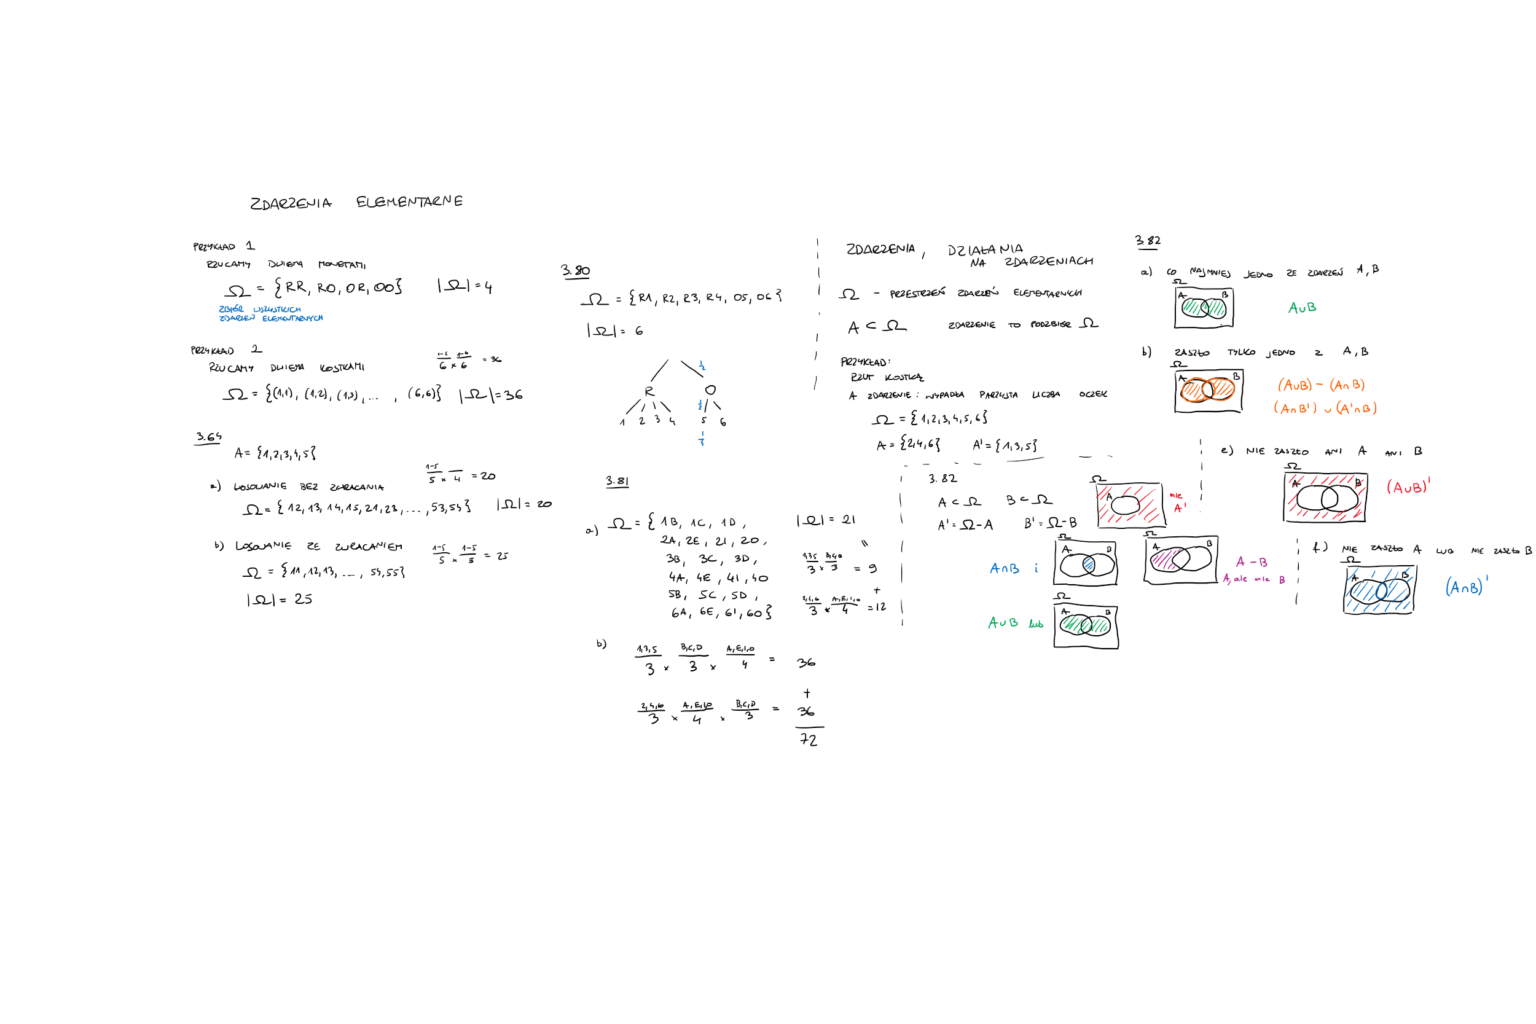 ZDARZENIA ELEMENTARNE
PRZYKŁAD 1
RZUCAMY DWIEMA MONETAMI
Ω = {RR, RO, OR, OO} |Ω| = 4
ZBIÓR WSZYSTKICH
ZDARZEŃ ELEMENTARNYCH
PRZYKŁAD 2
RZUCAMY DWIEMA KOSTKAMI
1-6 1-6
6 × 6 = 36
Ω = {(1,1), (1,2), (1,3), ... , (6,6)} |Ω| = 36
3.64
A = {1,2,3,4,5}
a) LOSOWANIE BEZ ZWRACANIA
1-5
5 × 4 = 20
Ω = {12, 13, 14, 15, 21, 23, ..., 53, 54} |Ω| = 20
b) LOSOWANIE ZE ZWRACANIEM
1-5 1-5
5 × 5 = 25
Ω = {11, 12, 13, ..., 54, 55}
|Ω| = 25
3.80
Ω = {R1, R2, R3, R4, O5, O6}
|Ω| = 6
1/2
R O
1 2 3 4 5 6
3.81
a) Ω = { 1B, 1C, 1D,
2A, 2E, 2I, 2O,
3B, 3C, 3D,
4A, 4E, 4I, 4O
5B, 5C, 5D,
6A, 6E, 6I, 6O}
|Ω| = 21
=
1,3,5 B,C,D
3 × 3 = 9
+
2,4,6 A,E,I,O
3 × 4 = 12
b)
1,3,5 B,C,D A,E,I,O
3 × 3 × 4 = 36
+
2,4,6 A,E,I,O B,C,D
3 × 4 × 3 = 36
72
ZDARZENIA, DZIAŁANIA
NA ZDARZENIACH
Ω - PRZESTRZEŃ ZDARZEŃ ELEMENTARNYCH
A ⊂ Ω ZDARZENIE TO PODZBIÓR Ω
PRZYKŁAD:
RZUT KOSTKĄ
A ZDARZENIE: WYPADŁA PARZYSTA LICZBA OCZEK
Ω = {1,2,3,4,5,6}
A = {2,4,6} A' = {1,3,5}
3.82
A ⊂ Ω B ⊂ Ω
A' = Ω - A B' = Ω - B
Ω
A
nie
A'
A∩B i
Ω
A B
Ω
A B
A - B
A, ale nie B
A∪B lub
Ω
A B
3.82
a) CO NAJMNIEJ JEDNO ZE ZDARZEŃ A, B
Ω
A B
A∪B
b) ZASZŁO TYLKO JEDNO Z A, B
Ω
A B
(A∪B) - (A∩B)
(A∩B') ∪ (A'∩B)
e) NIE ZASZŁO ANI A ANI B
Ω
A B
(A∪B)'
f) NIE ZASZŁO A LUB NIE ZASZŁO B
Ω
A B
(A∩B)'